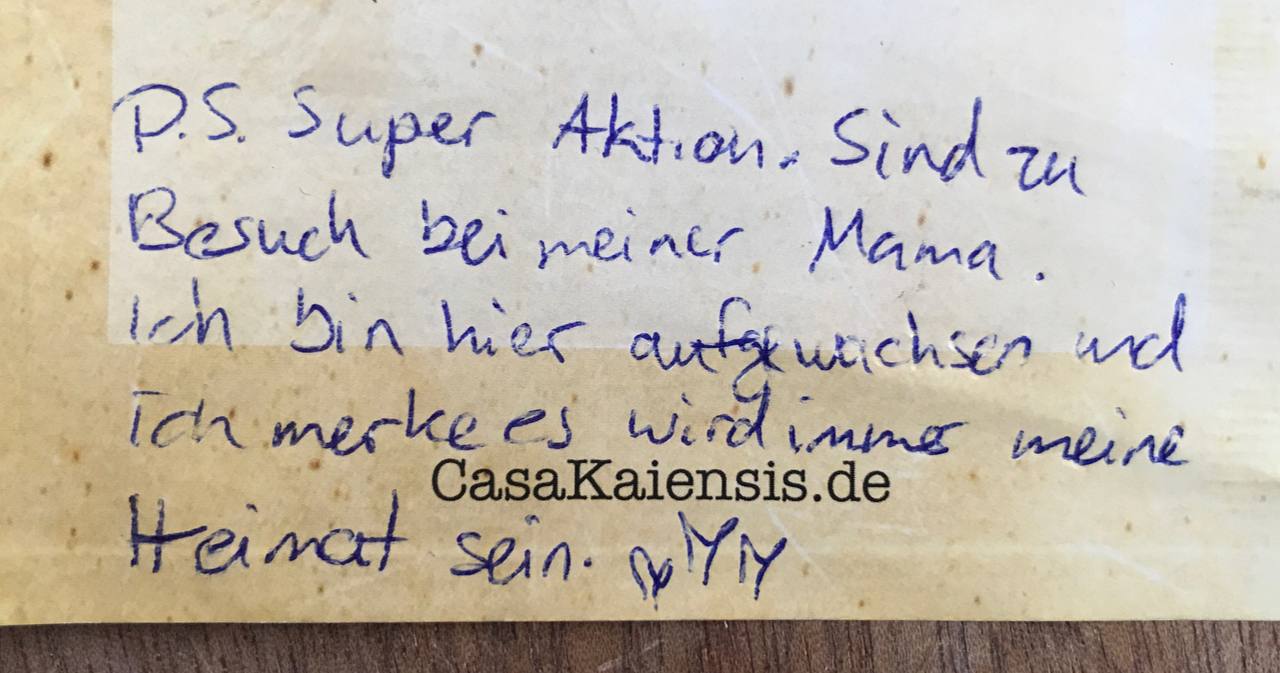 P.S. Super Aktion. Sind zu
Besuch bei meiner Mama.
Ich bin hier aufgewachsen und
Ich merke es wird immer meine
CasaKaiensis.de
Heimat sein. ♡